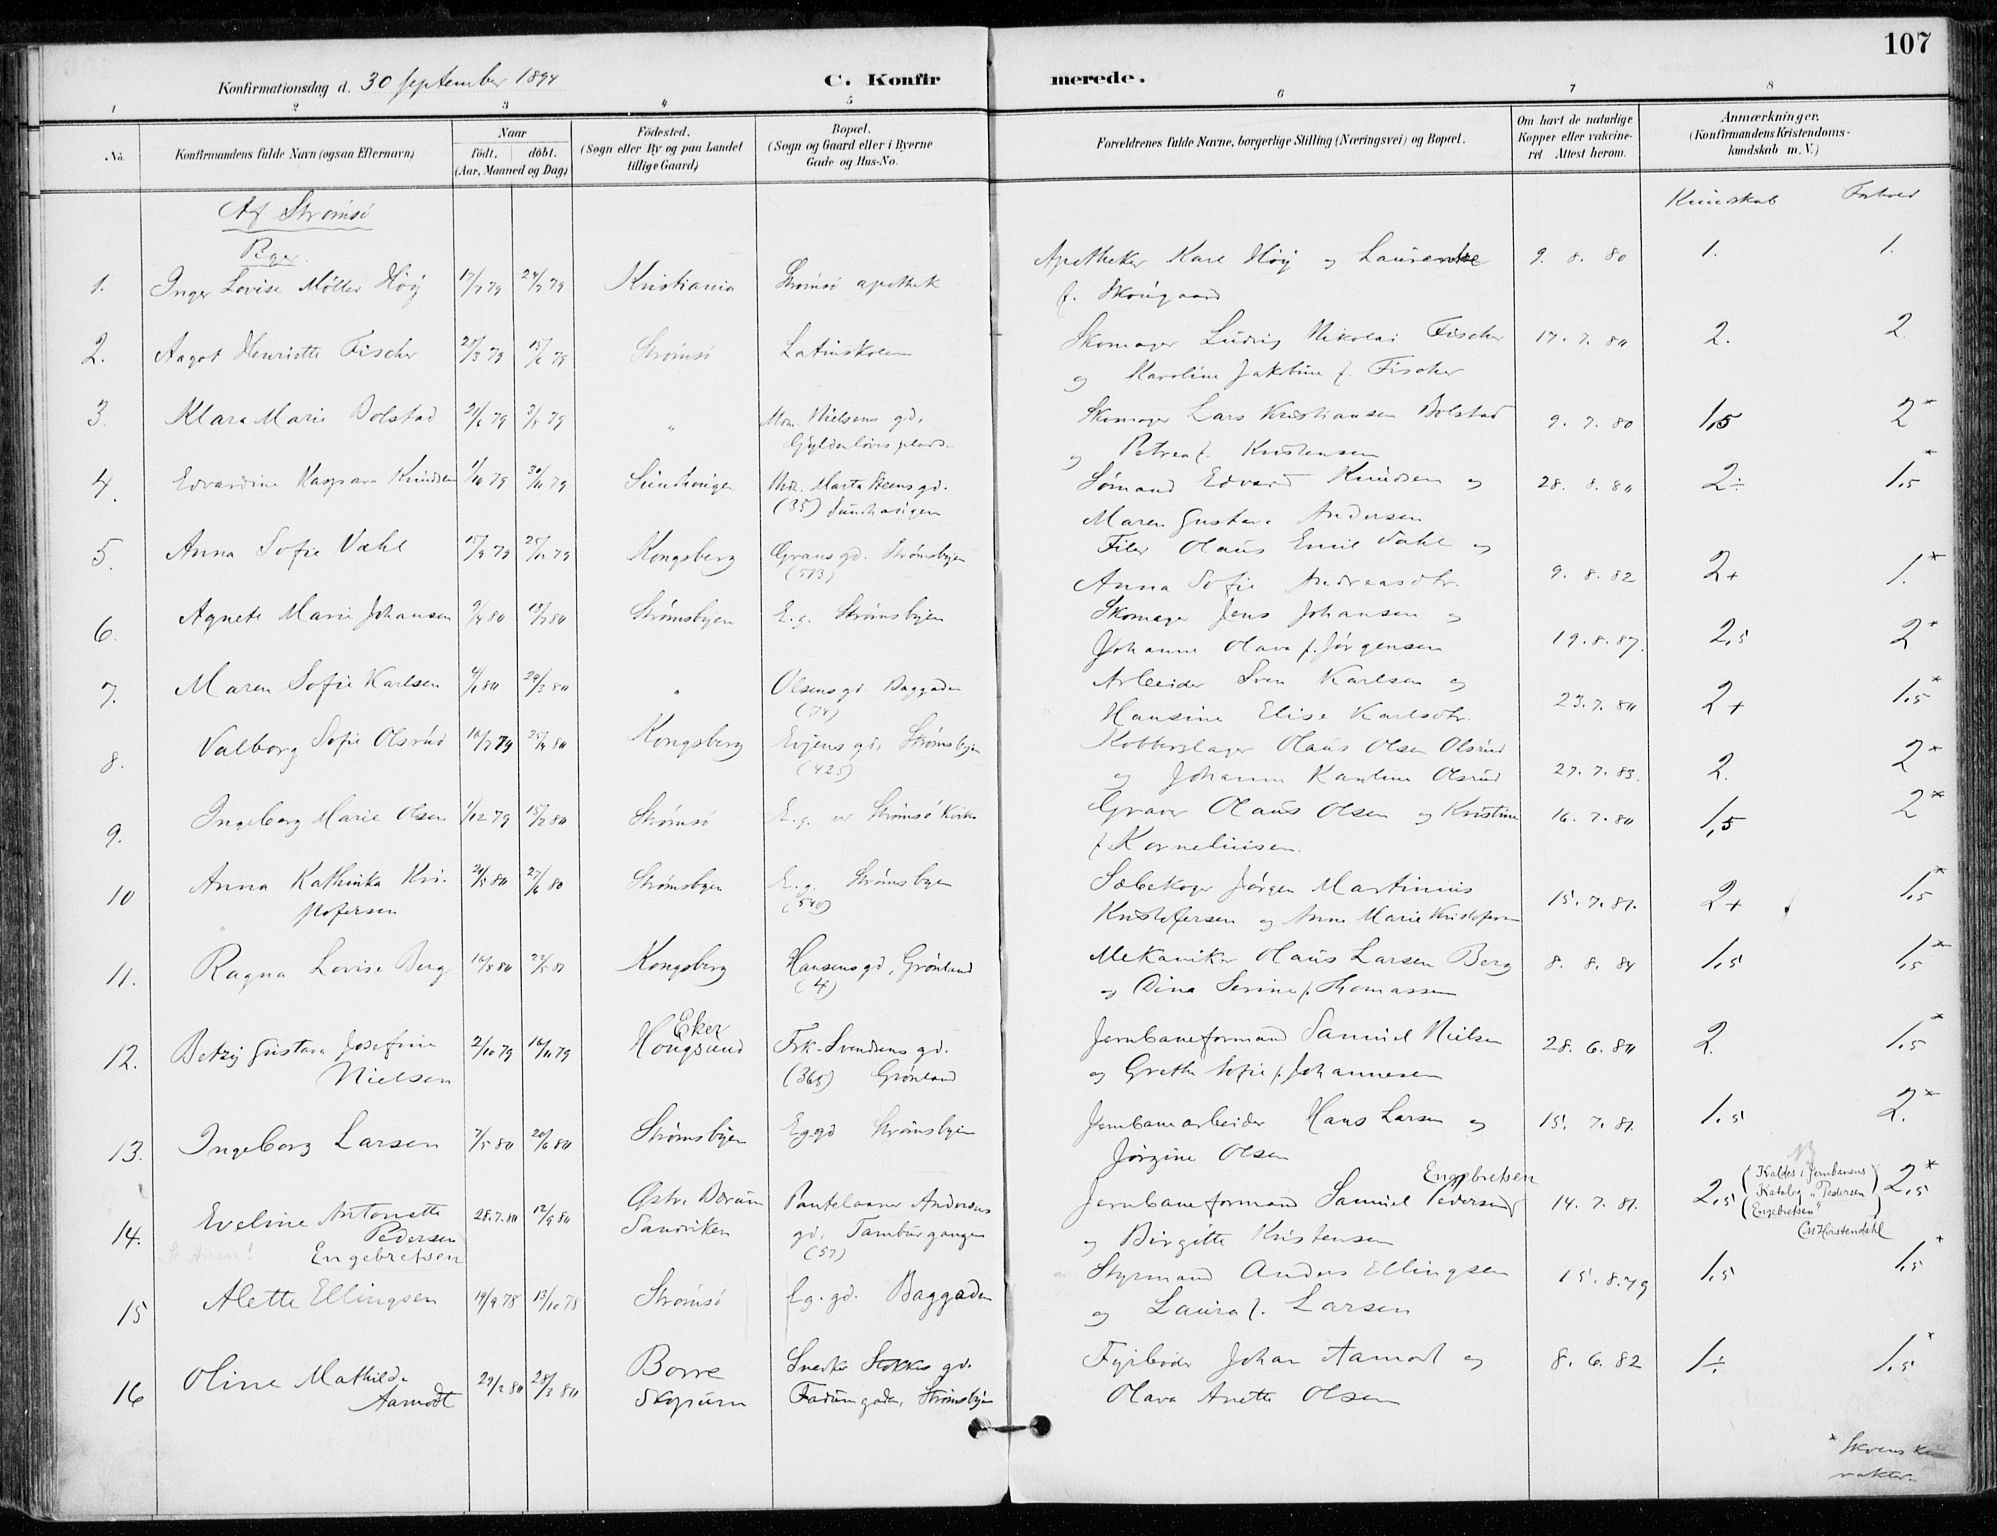 107
Konfirmationsdag d. 30 september 1894
C. Konfirmerede.
1 2 3 4 5 6 7 8
No.
Konfirmandens fulde Navn (ogsaa Efternavn)
Naar
født. døbt.
(Aar, Maaned og Dag)
Fødested.
(Sogn eller By og paa Landet
tillige Gaard)
Bopæl.
(Sogn og Gaard eller i Byerne
Gade og Hus-No.
Forældrenes fulde Navne, borgerlige Stilling (Næringsvei) og Bopæl.
Om havt de naturlige
Kopper eller vakcine-
ret Attest herom.
Anmærkninger,
(Konfirmandens Kristendoms-
kundskab m. V.)
Kundskab Forhold
Af Strømsø
Piger.
1. Inger Lovise Møller Høy 17/7 79 24/7 79 Kristiania Strømsø apothek Apotheker Karl Høy og 9. 8. 80 1. 1.
f. Skougaard
2. Aagot Henriette Fischer Strømsø Latinskolen Skomager Ludvig Nikolai Fischer 17. 7. 80 2. 2.
og Karoline Jakobine f. Fischer
3. Klara Marie Bolstad " Nielsens gd. Skomager Lars Kristiansen Bolstad 9. 7. 80 1,5 2*
Gyldenløves plads. og Petrea f. Kristensen
4. Edvardine Kaspara Knudsen 30/11 79 Marta Steens gd. Sømand Edvard Knudsen og 28. 8. 80 2÷ 1,5*
(35) Maren Gustava Andersen
5. Anna Sofie Vahl 15/9 79 Kongsberg Graus gd. Strømsbyen Filer Olaus Emil Vahl og 9. 8. 82 2+ 1.*
(513) Anna Sofie Andreasdtr.
6. Agnete Marie Johansen Strømsbyen E.g. Strømsbyen Skomager Jens Johansen og 19. 8. 87. 2,5 2*
Johanne Olava f. Jørgensen
7. Maren Sofie Karlsen 29/3 80 " Olsens gd. Baggaden Arbeider Sven Karlsen og 23. 7. 80 2+ 1,5*
(74) Hansine Elise Karlsdtr.
8. Valborg Sofie Olsrud Kongsberg Evjens gd. Strømsbyen Kobberslager Olaus Olsen Olsrud 27. 7. 83. 2. 2*
(425) og Johanne Olsrud
9. Ingeborg Marie Olsen 1/12 79 15/2 80 Strømsø E.g. ved Strømsø Kirke Graver Olaus Olsen og Kristine 16. 7. 80 1,5 2*
f. Korneliusen.
10 Anna Kathinka Kri- 27/6 80 Strømsbyen E.g. Strømsbyen Sæbekoger Jørgen Martinius 15. 7. 81. 2+ 1,5*
stofersen (540) Kristofersen og Anne Marie Kristofersen
11. Ragna Lovise Berg 16/8 80 Kongsberg Hansens gd. Grønland Mekaniker Olaus Larsen Berg 8. 8. 84 1,5 1,5*
(4) og Dina Serine f. Thomassen
12. Betzy Gustava Josefine 2/10 79 16/11 79 Eker Frk. Svendsens gd. Jernbaneformand Samuel Nielsen 28. 6. 80 2. 1,5*
Nielsen Hougsund (365) Grønland og Grethe Sofie f. Johannesen
13. Ingeborg Larsen 7/5 80 20/6 80 Strømsbyen Eg. gd Strømsbyen Jernbanearbeider Hans Larsen og 15. 7. 81. 1,5 2.*
Jørgine Olsen
14. Eveline Antonette 28.7.80 12/9 80 Østre Bærum Pantelaaner Andersens Jernbaneformand Samuel Pedersen Engebretsen 14. 7. 81. 2,5 2,5*
Pedersen Sandviken gd. Tamburgangen og Birgitte Kristensen
Engebretsen (57)
Se Anm!
(Kaldes i Jernbanens
Katalog "Pedersen
Engebretsen"
15 Alette Ellingsen 14/9 78 13/10 78 Strømsø Eg. gd. Baggaden Styrmand Anders Ellingsen 15. 8. 79 1,5 1,5*
og Laura f. Larsen
16 Oline Mathilde 29/2 80 28/3 80 Borre Snedker Stokkes gd. Fyrbøder Johan Aamodt og 8. 6. 82 1÷ 1,5*
Aamodt Skopum Fadumgaden, Strømsbyen Olava Anette Olsen